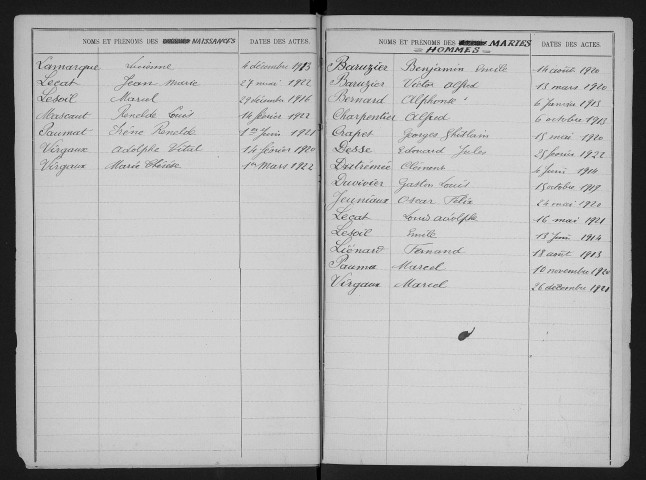 NOMS ET PRÉNOMS DES NAISSANCES DATES DES ACTES.
Lamarque Lucienne 4 décembre 1913
Legat Jean Marie 27 mai 1922
Lesoil Marcel 29 décembre 1916
Mascaut Renelde Louis 14 février 1922
Paumat Irène Renelde 1er Juin 1921
Virgaux Adolphe Vital 14 février 1920
Virgaux Marie Thérèse 1er Mars 1922
NOMS ET PRÉNOMS DES MARIÉS DATES DES ACTES.
HOMMES
Baruzier Benjamin Emile 14 août 1920
Baruzier Victor Alfred 13 mars 1920
Bernard Alphonse 6 Janvier 1913
Charpentier Alfred 6 octobre 1913
Crapet Georges Ghislain 15 mai 1920
Desse Edouard Jules 25 février 1922
Dutrémée Clément 4 Juin 1914
Duvivier Gaston Louis 15 octobre 1919
Jeuniaux Oscar Félix 24 mai 1920
Legat Louis Adolphe 16 mai 1921
Lesoil Emile 13 Juin 1914
Liénard Fernand 18 août 1913
Pauma Marcel 10 novembre 1920
Virgaux Marcel 26 décembre 1921